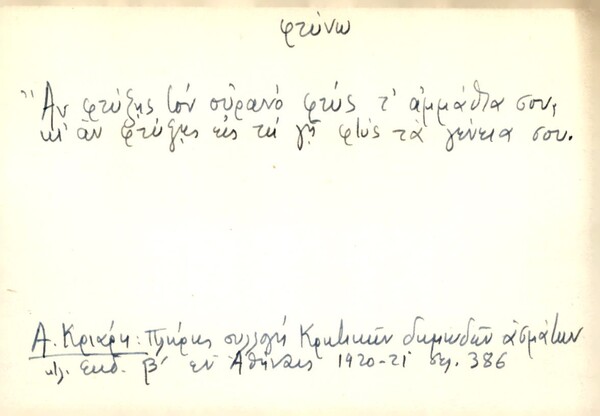 φτύνω
"Ἂν φτύξῃς τὸν οὐρανὸ φτύς τ' ἀμμάθια σου,
κι' ἂν φτύξῃς εἰς τὴ γῆ φτύς τὰ γένεια σου.
Α. Κριάρη: Πλήρης συλλογή Κρητικῶν δημωδῶν ἀσμάτων
κλ. εκδ. β' ἐν Ἀθήναις 1920-21 σελ. 386